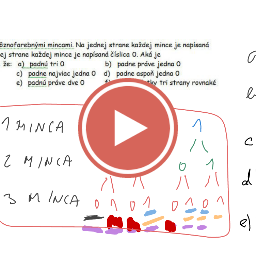 rôznofarebnými mincami. Na jednej strane každej mince je napísaná
ej strane každej mince je napísaná číslica 0. Aká je
že: a) padnú tri 0 b) padne práve jedna 0
c) padne najviac jedna 0 d) padne aspoň jedna 0
e) padnú práve dve 0 tky tri strany rovnaké
1 MINCA 1
2 MINCA 0 1
3 MINCA 0 1 0 1 0 1 0 1
c
d
e)